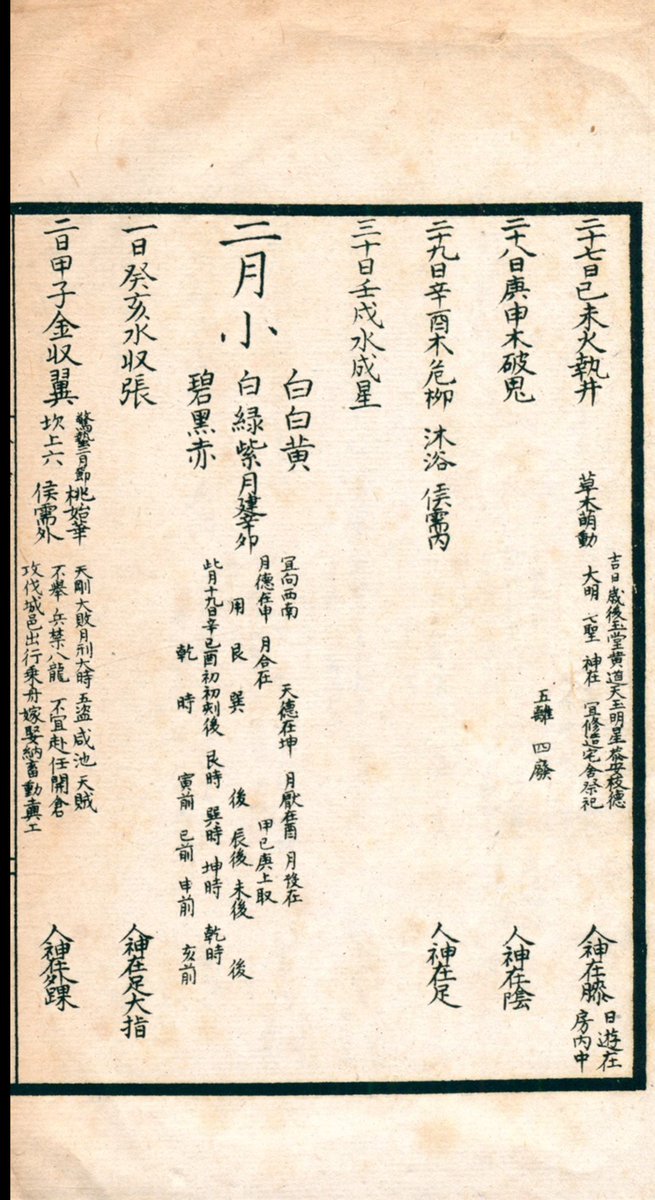 二十七日己未火執井 草木萌動 吉日歲後玉堂黄道天玉明星
大明 七聖 神在 宜修造宅舍祭祀 人神在膝 日遊在
房内中
二十八日庚申木破鬼 五離 四廢 人神在陰
二十九日辛酉木危柳 沐浴 侯需内 人神在足
三十日壬戌水成星
二月小
白白黄
白綠紫月建辛卯
碧黑赤
宜向西南 天德在坤 月厭在酉 月殺在
月德在甲 月合在 甲己庚上取
用艮巽 後 辰後 未後 後
此月十九日辛巳酉初初刻後 艮時 巽時 坤時 乾時
乾時 寅前 巳前 申前 亥前
一日癸亥水收張 人神在足大指
二日甲子金收翼 驚蟄二月節 桃始華
坎上六 侯需外
天剛大敗月刑大時五盜 咸池 天賊
不舉 兵禁八龍 不宜赴任開倉
攻伐城邑出行乘舟嫁娶納畜動土工
人神在外踝